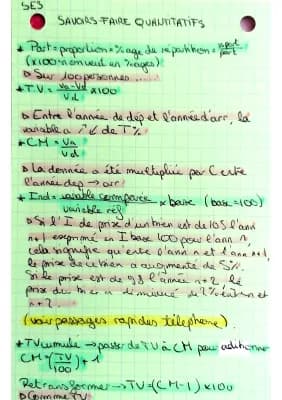 SES
SAVOIRS-FAIRE QUANTITATIFS
* Part = proportion = %age de répartition =
(x100 si on veut en %ages)
▷ Sur 100 personnes ....
* T.V. = Va-Vd / Vd x100
▷ Entre l'année de dép et l'année d'arr, la
variable a ↗↙ de T%
* CM = Va / Vd
▷ La donnée a été multipliée par C entre
l'année dép → arr
* Ind = variable comparée / variable réf x base (base=100)
▷ Si l'I de prix d'un bien est de 105 l'ann
n+1 exprimé en I base 100 pour l'ann n
cela signifie qu'entre l'ann n et l'ann n+1,
le prix de ce bien a augmenté de 5%.
Si le prix est de 93 l'année n+2 le
prix du bien a diminué de 7% entre n et
n+2.
(voir passages rapides téléphone).
* TV cumulé → passer de TV à CM pour additionner
CM = (TV/100) + 1
Retransformer → TV = (CM-1) x100
▷ Comme TV